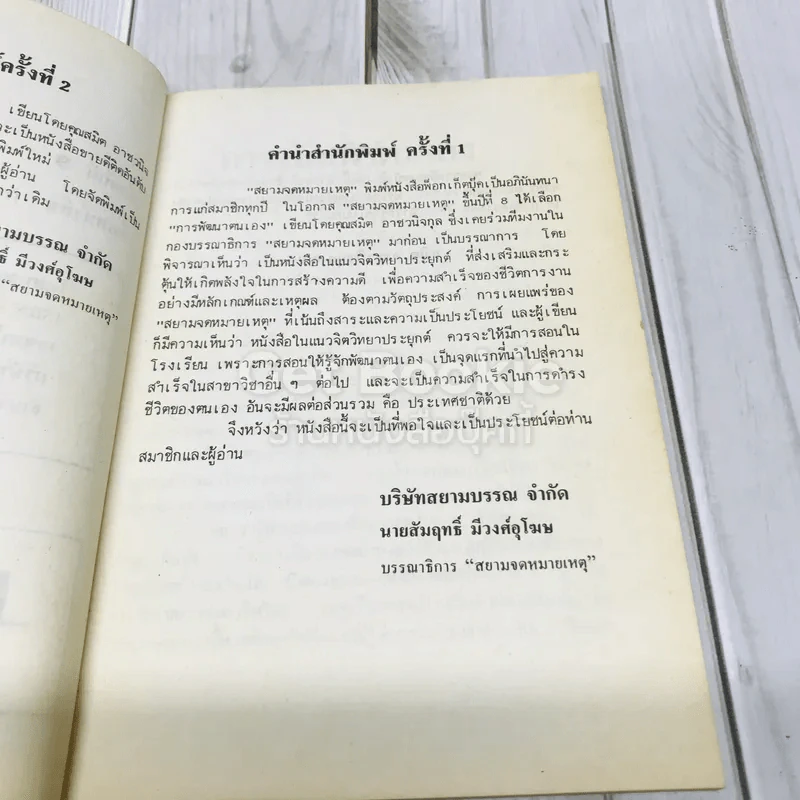 ครั้งที่ 2
เขียนโดยคุณสมิต อาชวนิจ
จะเป็นหนังสือขายดีติดอันดับ
พิมพ์ใหม่
ผู้อ่าน โดยจัดพิมพ์เป็น
กว่าเดิม
ยามบรรณ จำกัด
ธิ์ มีวงศ์อุโฆษ
"สยามจดหมายเหตุ"
คำนำสำนักพิมพ์ ครั้งที่ 1
"สยามจดหมายเหตุ" พิมพ์หนังสือพ็อกเก็ตบุ๊คเป็นอภินันทนา
การแก่สมาชิกทุกปี ในโอกาส "สยามจดหมายเหตุ" ขึ้นปีที่ 8 ได้เลือก
"การพัฒนาตนเอง" เขียนโดยคุณสมิต อาชวนิจกุล ซึ่งเคยร่วมทีมงานใน
กองบรรณาธิการ "สยามจดหมายเหตุ" มาก่อน เป็นบรรณาการ โดย
พิจารณาเห็นว่า เป็นหนังสือในแนวจิตวิทยาประยุกต์ ที่ส่งเสริมและกระ
ตุ้นให้เกิดพลังใจในการสร้างความดี เพื่อความสำเร็จของชีวิตการงาน
อย่างมีหลักเกณฑ์และเหตุผล ต้องตามวัตถุประสงค์ การเผยแพร่ของ
"สยามจดหมายเหตุ" ที่เน้นถึงสาระและความเป็นประโยชน์ และผู้เขียน
ก็มีความเห็นว่า หนังสือในแนวจิตวิทยาประยุกต์ ควรจะให้มีการสอนใน
โรงเรียน เพราะการสอนให้รู้จักพัฒนาตนเอง เป็นจุดแรกที่นำไปสู่ความ
สำเร็จในสาขาวิชาอื่น ๆ ต่อไป และจะเป็นความสำเร็จในการดำรง
ชีวิตของตนเอง อันจะมีผลต่อส่วนรวม คือ ประเทศชาติด้วย
จึงหวังว่า หนังสือนี้จะเป็นที่พอใจและเป็นประโยชน์ต่อท่าน
สมาชิกและผู้อ่าน
บริษัทสยามบรรณ จำกัด
นายสัมฤทธิ์ มีวงศ์อุโฆษ
บรรณาธิการ "สยามจดหมายเหตุ"